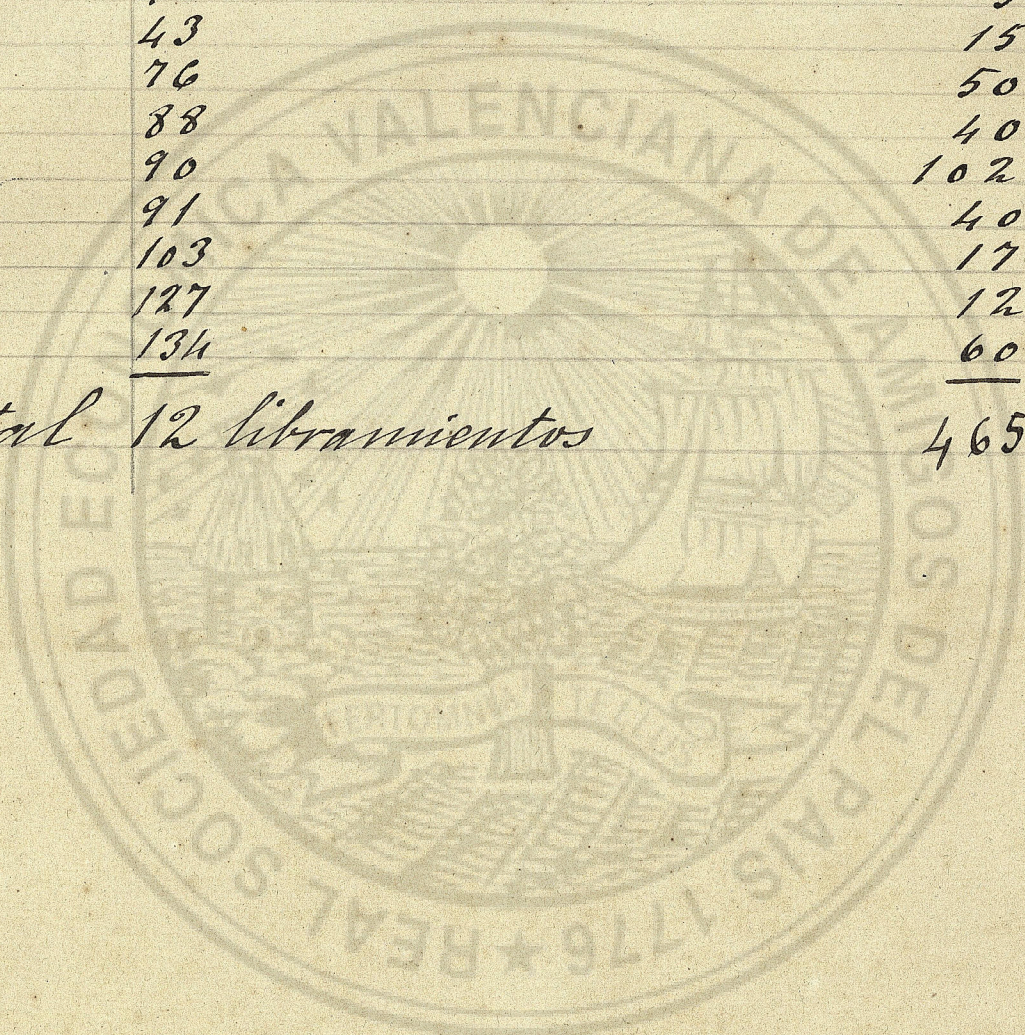 43 15
76 50
88 40
90 102
91 40
103 17
127 12
134 60
tal 12 libramientos 465
REAL SOCIEDAD ECONÓMICA VALENCIANA DE AMIGOS DEL PAÍS 1776